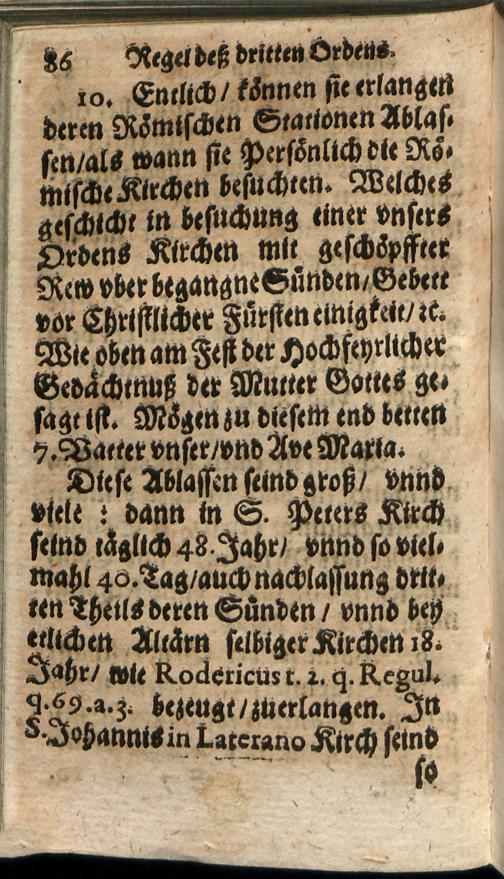 86 Regel deß dritten Ordens.
10. Entlich / können sie erlangen
deren Römischen Stationen Ablas-
sen/als wann sie Persönlich die Rö-
mische Kirchen besuchten. Welches
geschicht in besuchung einer vnsers
Ordens Kirchen mit geschöpffter
Rew vber begangne Sünden/Gebett
vor Christlicher Fürsten einigkeit/ ꝛc.
Wie oben am Fest der Hochfeyrlicher
Gedächtnuß der Mutter Gottes ge-
sagt ist. Mögen zu diesem end betten
7. Vatter vnser/vnd Ave Maria.
Diese Ablassen seind groß/ vnnd
viele : dann in S. Peters Kirch
seind täglich 48. Jahr/ vnnd so viel-
mahl 40. Tag/auch nachlassung drit-
ten Theils deren Sünden / vnnd bey
etlichen Altärn selbiger Kirchen 18.
Jahr/ wie Rodericus t. 2. q. Regul.
q.69.a.3. bezeugt/zuerlangen. In
S. Johannis in Laterano Kirch seind
so